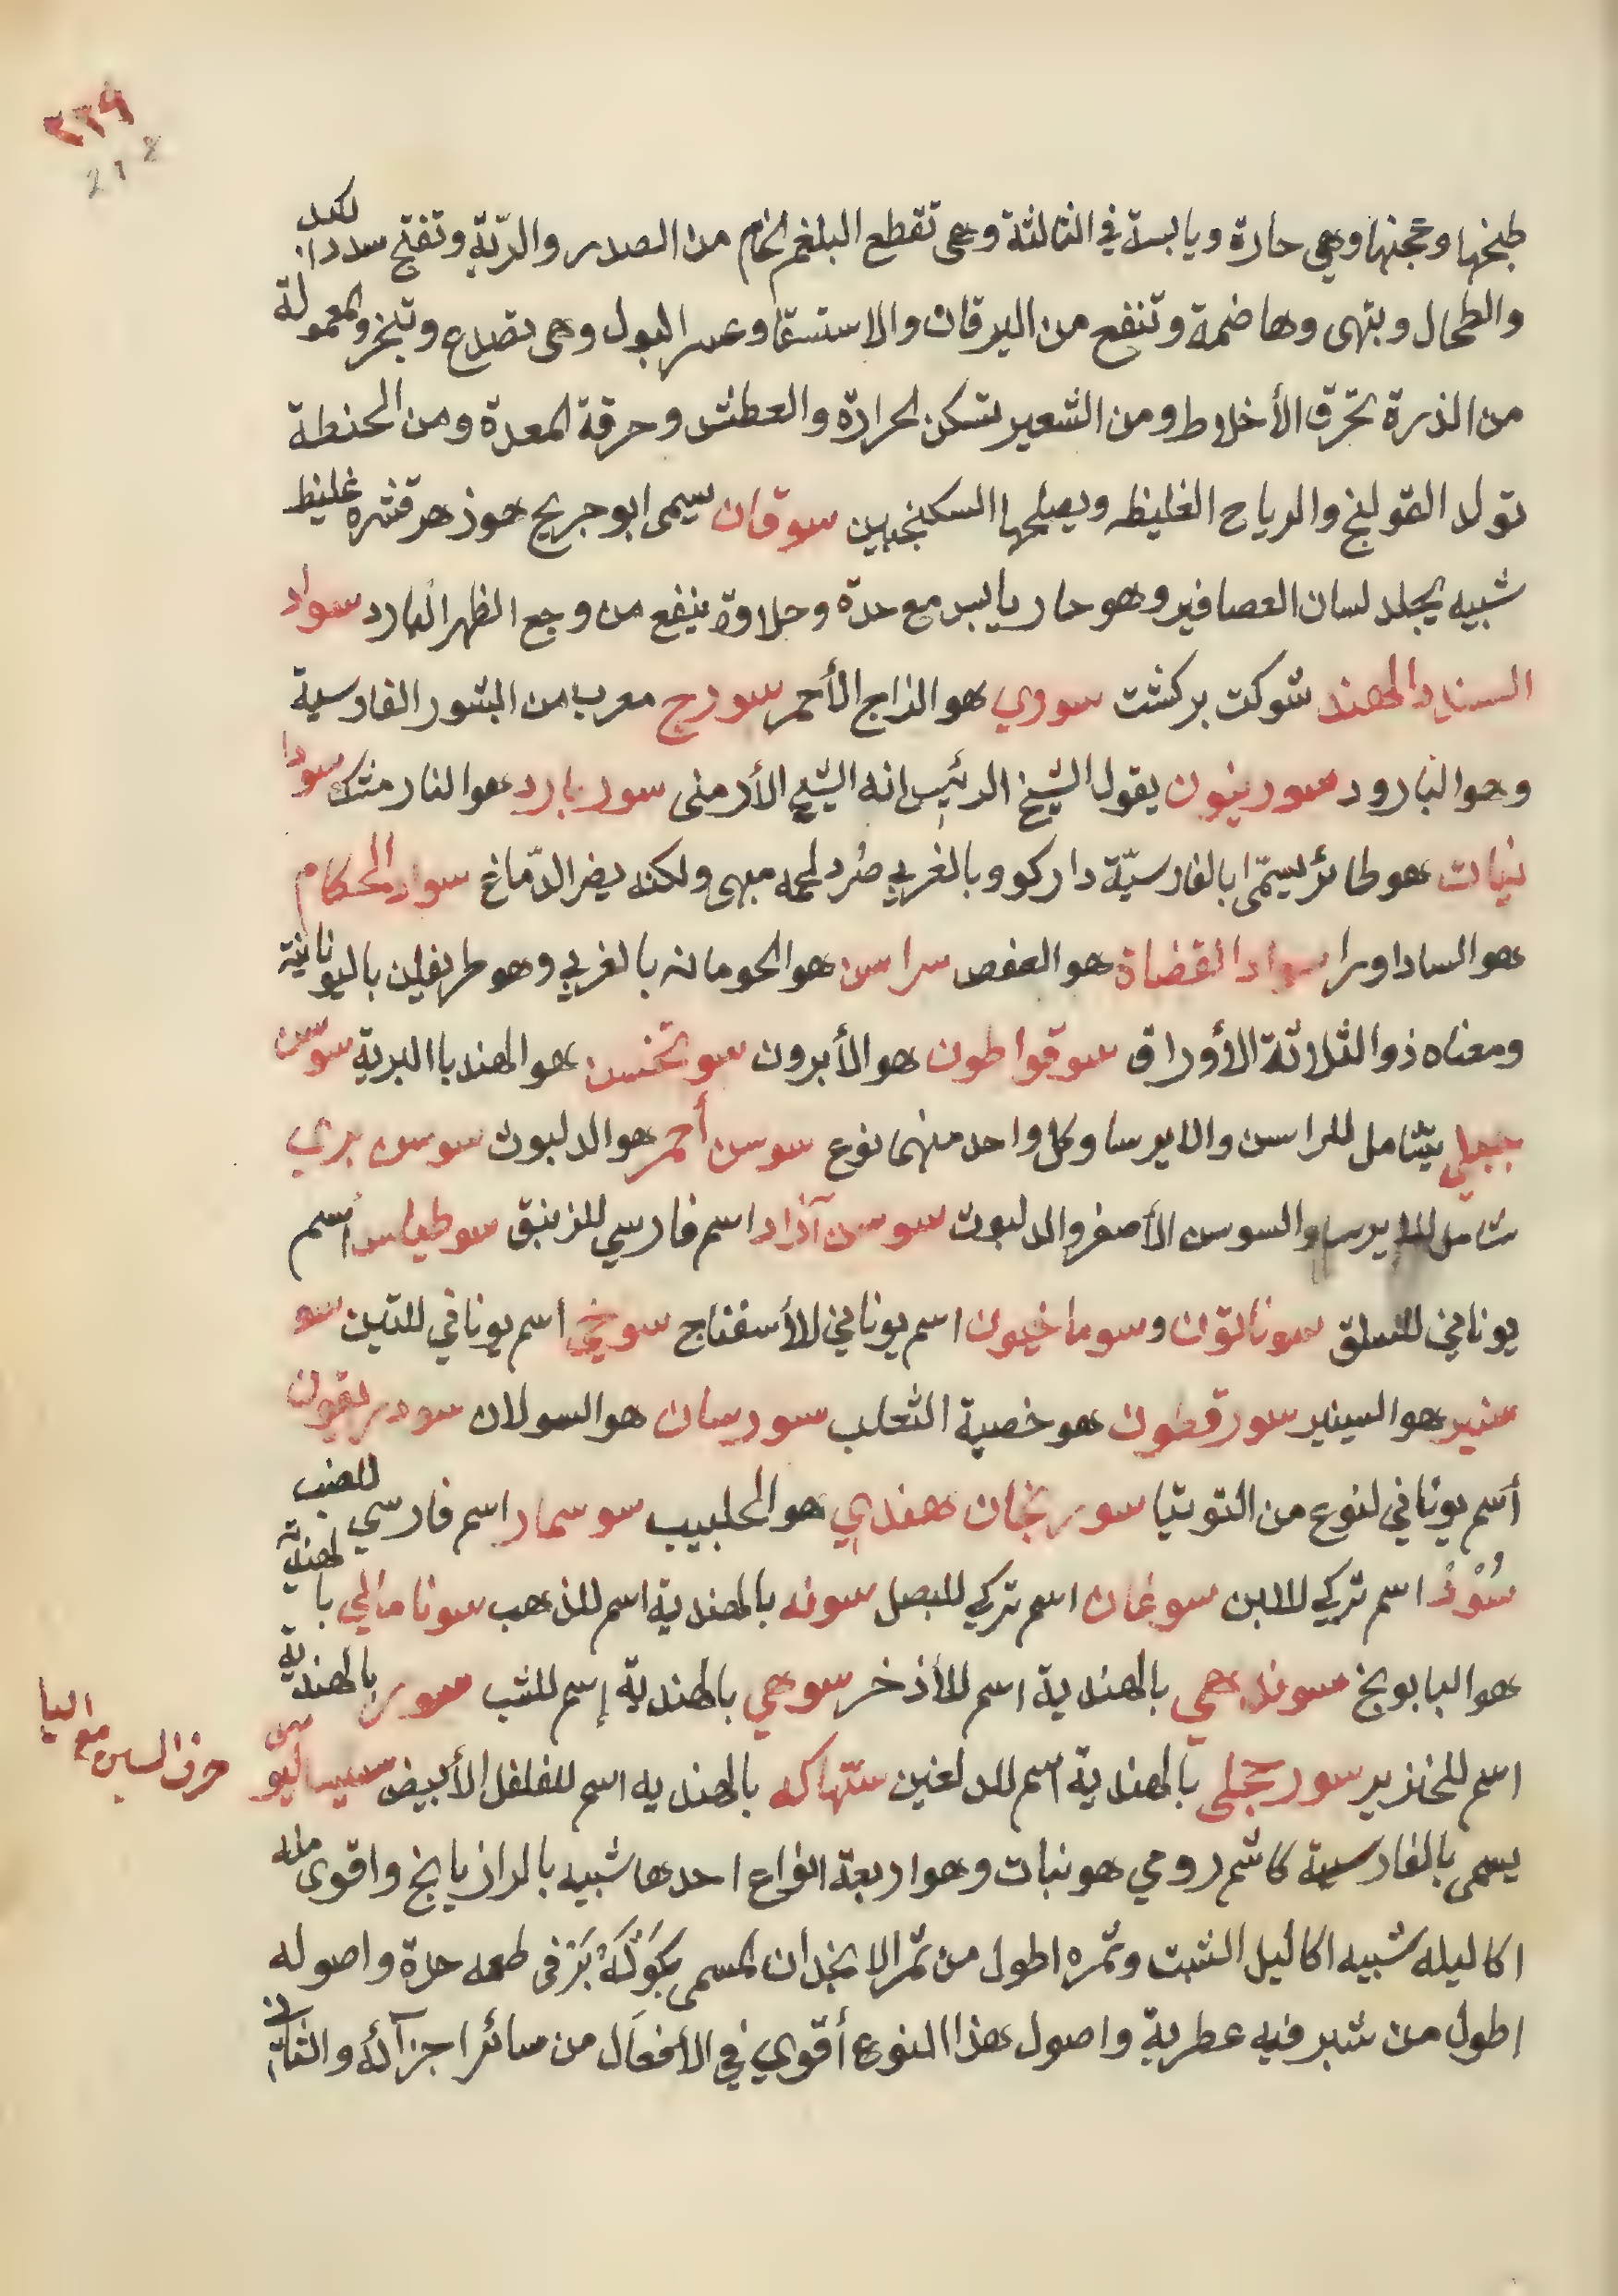 ٢٦٩
218
طبخها وعجنها وهي حارة ويابسة في الثالثة وهى تقطع البلغم الخام من الصدر والرّية وتفتح سدد الكبد
والطحال وبتهى وهاضمة وتنفع من اليرقان والاستسقا وعسر البول وهى تصدع وتبخر والمعمولة
من الذرة تحرق الأخلاط ومن الشعير تسكن الحرارة والعطش وحرقة المعدة ومن الحنطة
تولد القولنج والرياح الغليظه ويصلحها السكنجبين سوقان سيمى ابو جريج هوذهر قشره غليظ
شبيه بجلد لسان العصافير وهو حار يابس مع حدة وحلاوة ينفع من وجع الظهر البارد سواد
السند والهند شوكت بركشت سوري هو الزاج الأحمر سورج معرب من الشور الفارسية
وهو البارود سورنيون يقول الشيخ الرئيس انه الشيح الأرمنى سوربارد هو النارمشك سودا
نيات هو طائر يسمّى بالفارسيّة داركوو بالغربي صُرد لحمه مبهى ولكنه يضر الدّماغ سواد الحكام
هو الساداوراسواد القضاة هو العفص سراسن هو الحومانه بالغربي وهو طريفلين باليونانية
ومعناه ذو الثلاثة الأوراق سوقواطون هو الأبرون سوتخنسن هو الهندبا البرية سوسن
جبلي يتنامل للراسن والايرسا وكل واحد منهما نوع سوسن أحمر هو الدلبوث سوسن بري
شامل للايرسا والسوسن الأصفر والدلبوث سوسن آزاد اسم فارسي للزنبق سوطياس اسم
يوناني للسلق سوناتون وسوماخيون اسم يوناني للأسفناج سوخي أسم يوناني للتين سو
سنير هو السينير سورقطون هو خصية الثعلب سوريسان هو السولان سودريقون
أسم يوناني لنوع من التوتيا سورنجان هندي هو الحلبيب سوسمار اسم فارسي للضب
سُوْدْ اسم تركي للابن سوغان اسم تركي للبصل سونه بالهندية اسم للذهب سونامالي بالهندية
هو البابونج سوندهي بالهندية اسم للأذخر سوهي بالهندية إسم للشب سور بالهندية
اسم للخنزير سورجبلي بالهندية اسم للدلفين ستهاكه بالهنديه اسم للفلفل الأبيض سيساليوس
حرف السين مع اليا
يسمى بالفارسية كاشم رومي هو نبات وهو اربعة انواع احدها شبيه بالرازيانج واقوى منه
اكاليله شبيه اكاليل الشبت وثمره اطول من ثمر الانجدان المسمى بكَوْلَهْ بَرْ فى طعمه حدة واصوله
اطول من شبر فيه عطرية واصول هذا النوع أقوي في الأفعال من سائر اجزآئه والثانى